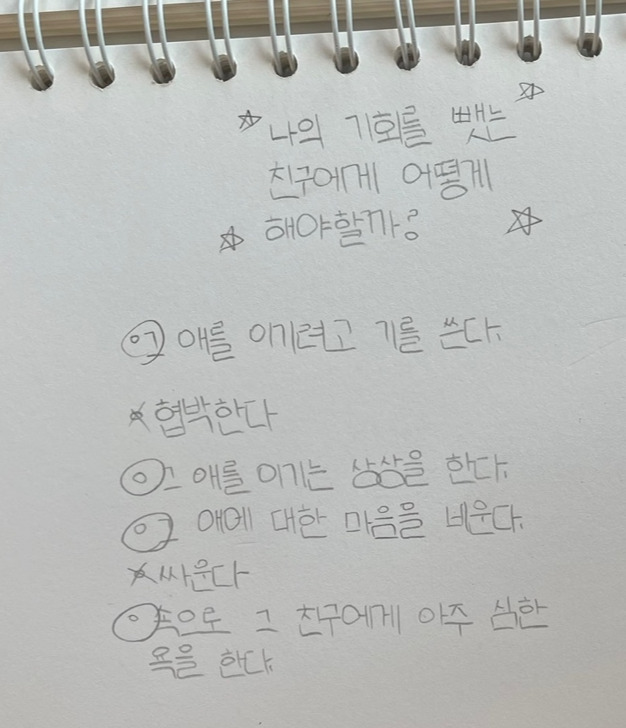 나의 기회를 뺏는
친구에게 어떻게
해야할까?
그 애를 이기려고 기를 쓴다.
협박한다
그 애를 이기는 상상을 한다.
그 애에 대한 마음을 비운다.
싸운다
속으로 그 친구에게 아주 심한
욕을 한다.